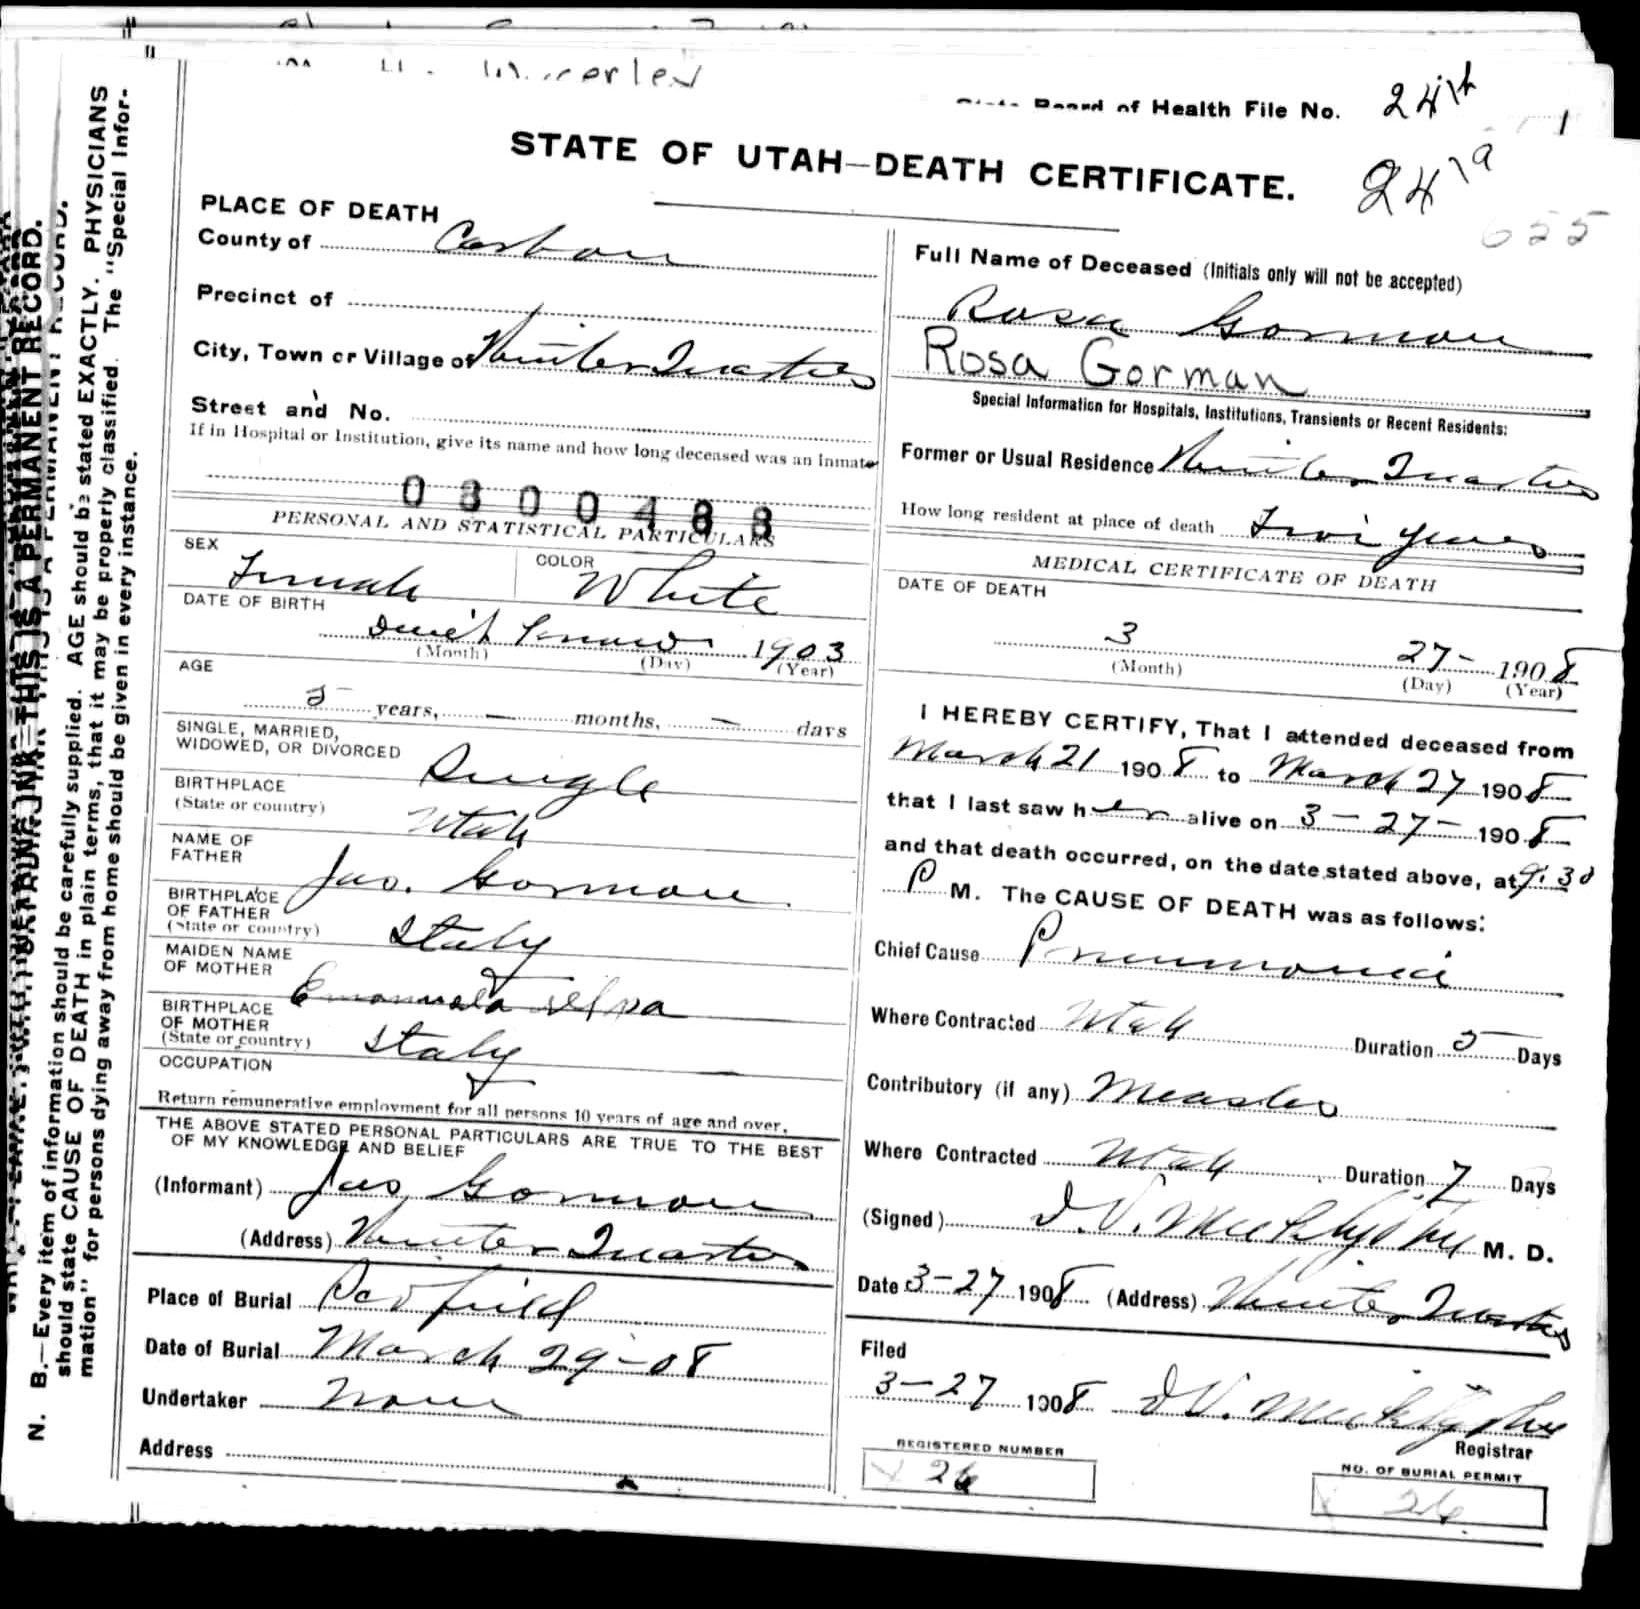 State Board of Health File No. 24
STATE OF UTAH—DEATH CERTIFICATE.
24
655
PLACE OF DEATH
County of Carbon
Precinct of
City, Town or Village of Winter Quarters
Street and No.
If in Hospital or Institution, give its name and how long deceased was an Inmate
0800488
PERSONAL AND STATISTICAL PARTICULARS
SEX Female COLOR White
DATE OF BIRTH
Don't Know 1903
(Month) (Day) (Year)
AGE
5 years, — months, — days
SINGLE, MARRIED,
WIDOWED, OR DIVORCED Single
BIRTHPLACE
(State or country) Utah
NAME OF
FATHER Jas. Gorman
BIRTHPLACE
OF FATHER
(State or country) Italy
MAIDEN NAME
OF MOTHER Emanuela
BIRTHPLACE
OF MOTHER
(State or country) Italy
OCCUPATION
Return remunerative employment for all persons 10 years of age and over.
THE ABOVE STATED PERSONAL PARTICULARS ARE TRUE TO THE BEST
OF MY KNOWLEDGE AND BELIEF
(Informant) Jas Gorman
(Address) Winter Quarters
Place of Burial Scofield
Date of Burial March 29-08
Undertaker None
Address
Full Name of Deceased (Initials only will not be accepted)
Rosa Gorman
Rosa Gorman
Special Information for Hospitals, Institutions, Transients or Recent Residents:
Former or Usual Residence Winter Quarters
How long resident at place of death years
MEDICAL CERTIFICATE OF DEATH
DATE OF DEATH
3 27- 1908
(Month) (Day) (Year)
I HEREBY CERTIFY, That I attended deceased from
March 21 1908 to March 27 1908
that I last saw her alive on 3-27- 1908
and that death occurred, on the date stated above, at 9:30
P M. The CAUSE OF DEATH was as follows:
Chief Cause Pneumonia
Where Contracted Utah Duration 5 Days
Contributory (if any) Measles
Where Contracted Utah Duration 7 Days
(Signed) M. D.
Date 3-27 1908 (Address) Winter Quarters
Filed
3-27 1908
Registrar
REGISTERED NUMBER
26
NO. OF BURIAL PERMIT
26
N. B.—Every item of information should be carefully supplied. AGE should be stated EXACTLY. PHYSICIANS
should state CAUSE OF DEATH in plain terms, that it may be properly classified. The "Special Infor-
mation" for persons dying away from home should be given in every instance.
THIS IS A PERMANENT RECORD.